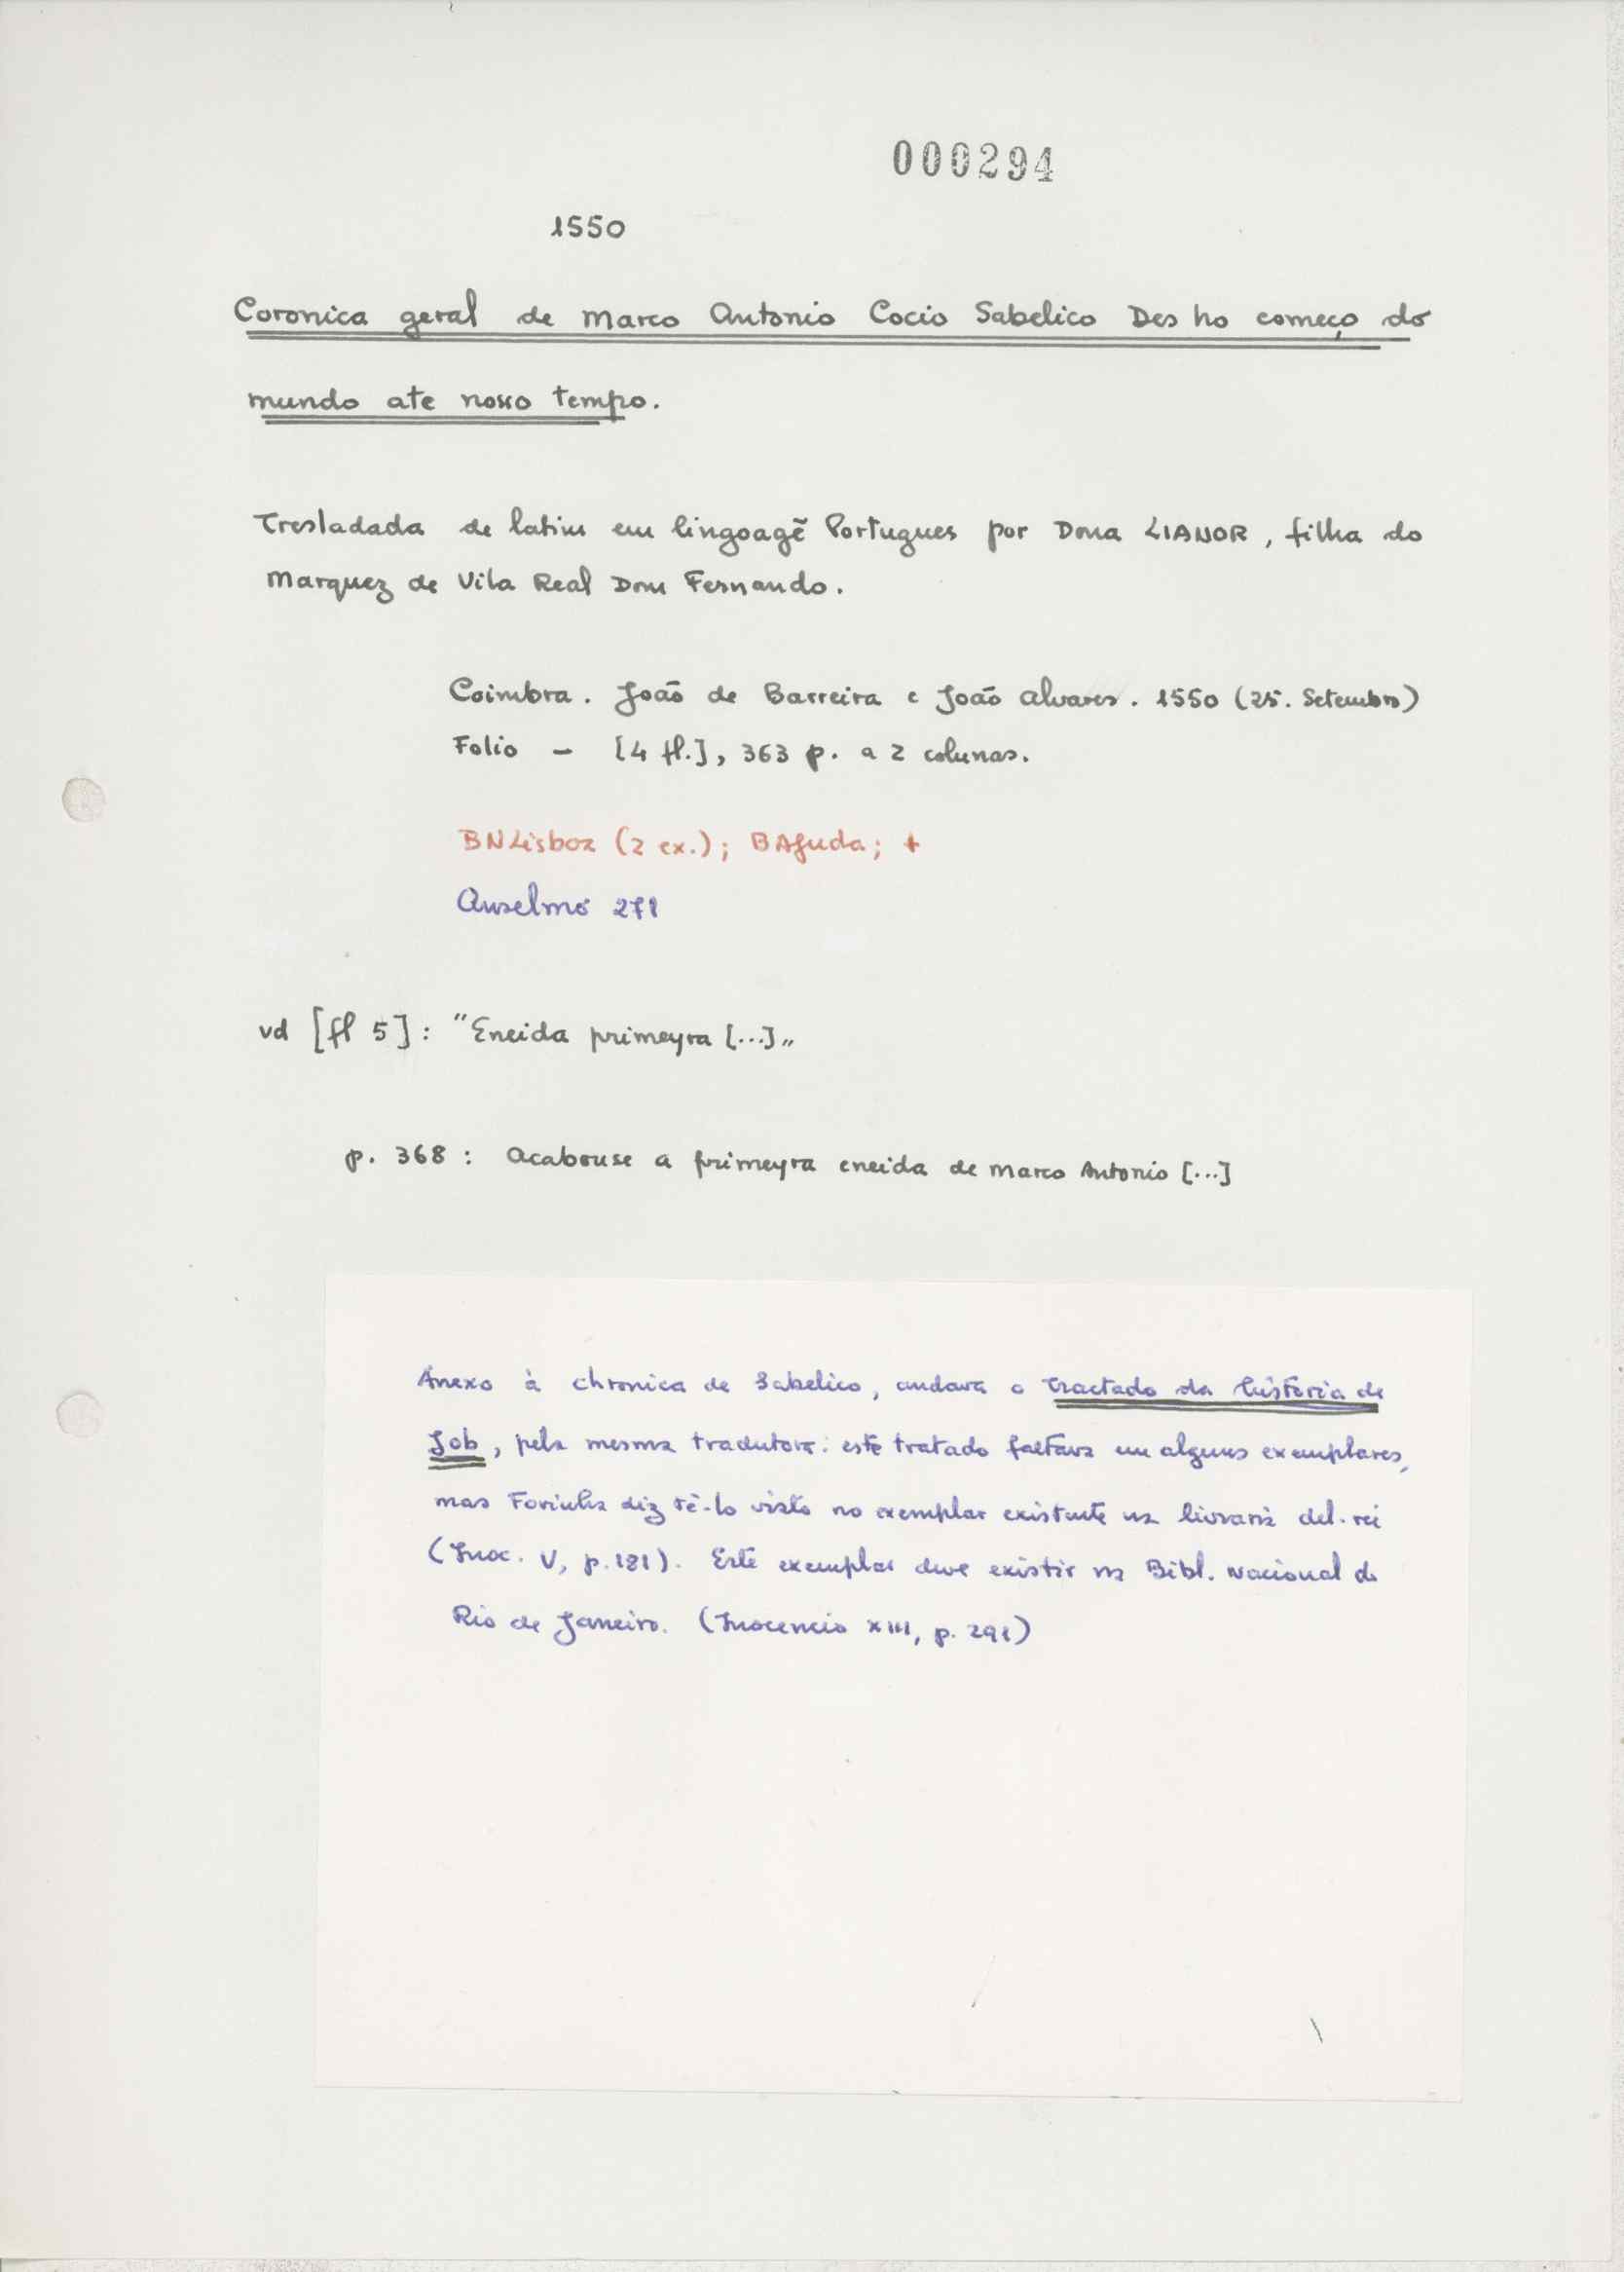 000294
1550
Coronica geral de Marco Antonio Cocio Sabelico Des ho começo do
mundo ate nosso tempo.
Tresladada de latim em lingoagẽ Portugues por Dona LIANOR, filha do
Marquez de Vila Real Dom Fernando.
Coimbra. João de Barreira e João Alvares. 1550 (25. Setembro)
Folio - [4 fl.], 363 p. a 2 colunas.
BNLisboa (2 ex.); BAjuda; +
Anselmo 271
vd [fl 5]: "Eneida primeyra [...]"
p. 368: Acabouse a primeyra eneida de Marco Antonio [...]
Anexo à chronica de Sabelico, andava o Tractado da historia de
Job, pela mesma tradutora: este tratado faltava em alguns exemplares,
mas Farinha diz tê-lo visto no exemplar existente na livraria del-rei
(Inoc. V, p. 181). Este exemplar deve existir na Bibl. Nacional do
Rio de Janeiro. (Inocencio XIII, p. 291)